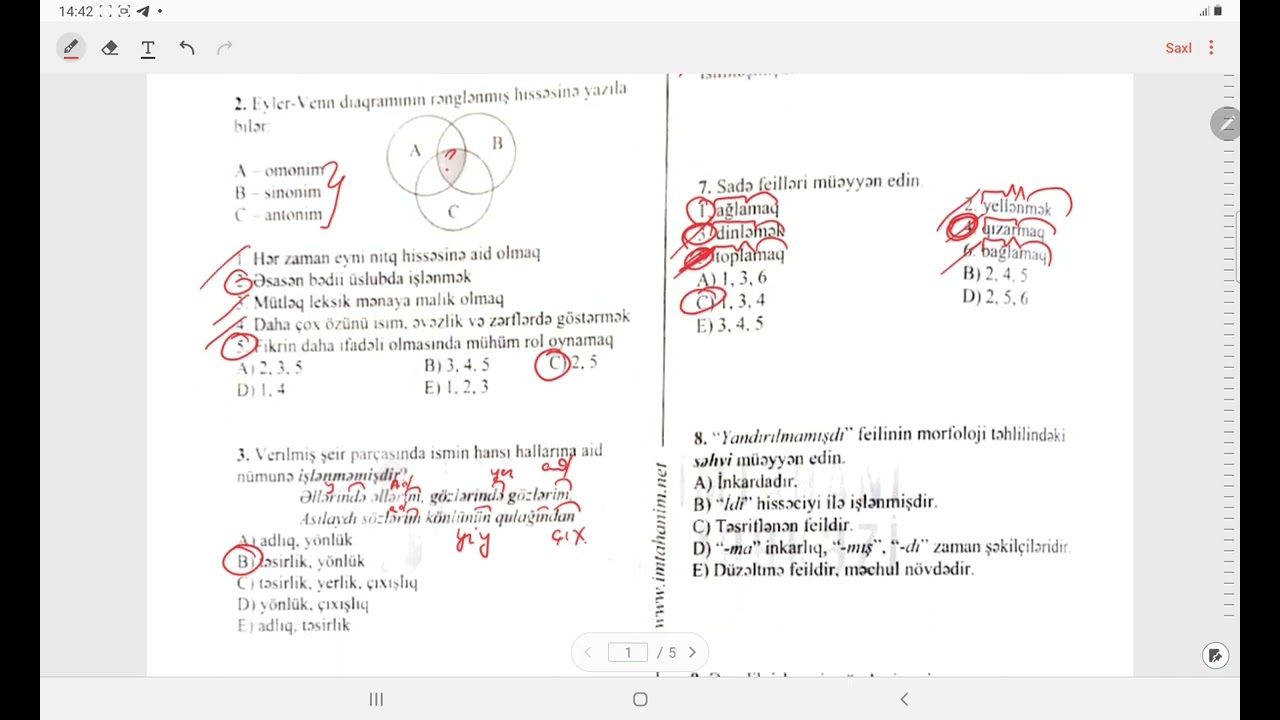 14:42
T
Saxl
2. Eyler-Venn diaqramının rənglənmiş hissəsinə yazıla
bilər:
A
B
?
C
A – omonim
B – sinonim
C – antonim
1. Hər zaman eyni nitq hissəsinə aid olmaq
2. Əsasən bədii üslubda işlənmək
3. Mütləq leksik mənaya malik olmaq
4. Daha çox özünü isim, əvəzlik və zərflərdə göstərmək
5. Fikrin daha ifadəli olmasında mühüm rol oynamaq
A) 2, 3, 5 B) 3, 4, 5 C) 2, 5
D) 1, 4 E) 1, 2, 3
3. Verilmiş şeir parçasında ismin hansı hallarına aid
nümunə işlənməmişdir?
y yer ad
Əllərində əllərim, gözlərində gözlərim
Asılaydı sözlərim könlünün qulağından
yiy çıx
A) adlıq, yönlük
B) təsirlik, yönlük
C) təsirlik, yerlik, çıxışlıq
D) yönlük, çıxışlıq
E) adlıq, təsirlik
www.imtahanim.net
7. Sadə feilləri müəyyən edin.
1. ağlamaq 2. yellənmək
3. dinləmək 4. qızarmaq
toplamaq 6. bağlamaq
A) 1, 3, 6 B) 2, 4, 5
C) 1, 3, 4 D) 2, 5, 6
E) 3, 4, 5
8. “Yandırılmamışdı” feilinin morfoloji təhlilindəki
səhvi müəyyən edin.
A) İnkardadır.
B) “İdi” hissəciyi ilə işlənmişdir.
C) Təsriflənən feildir.
D) “-ma” inkarlıq, “-mış”, “-dı” zaman şəkilçiləridir.
E) Düzəltmə feildir, məchul növdədir.
1 / 5